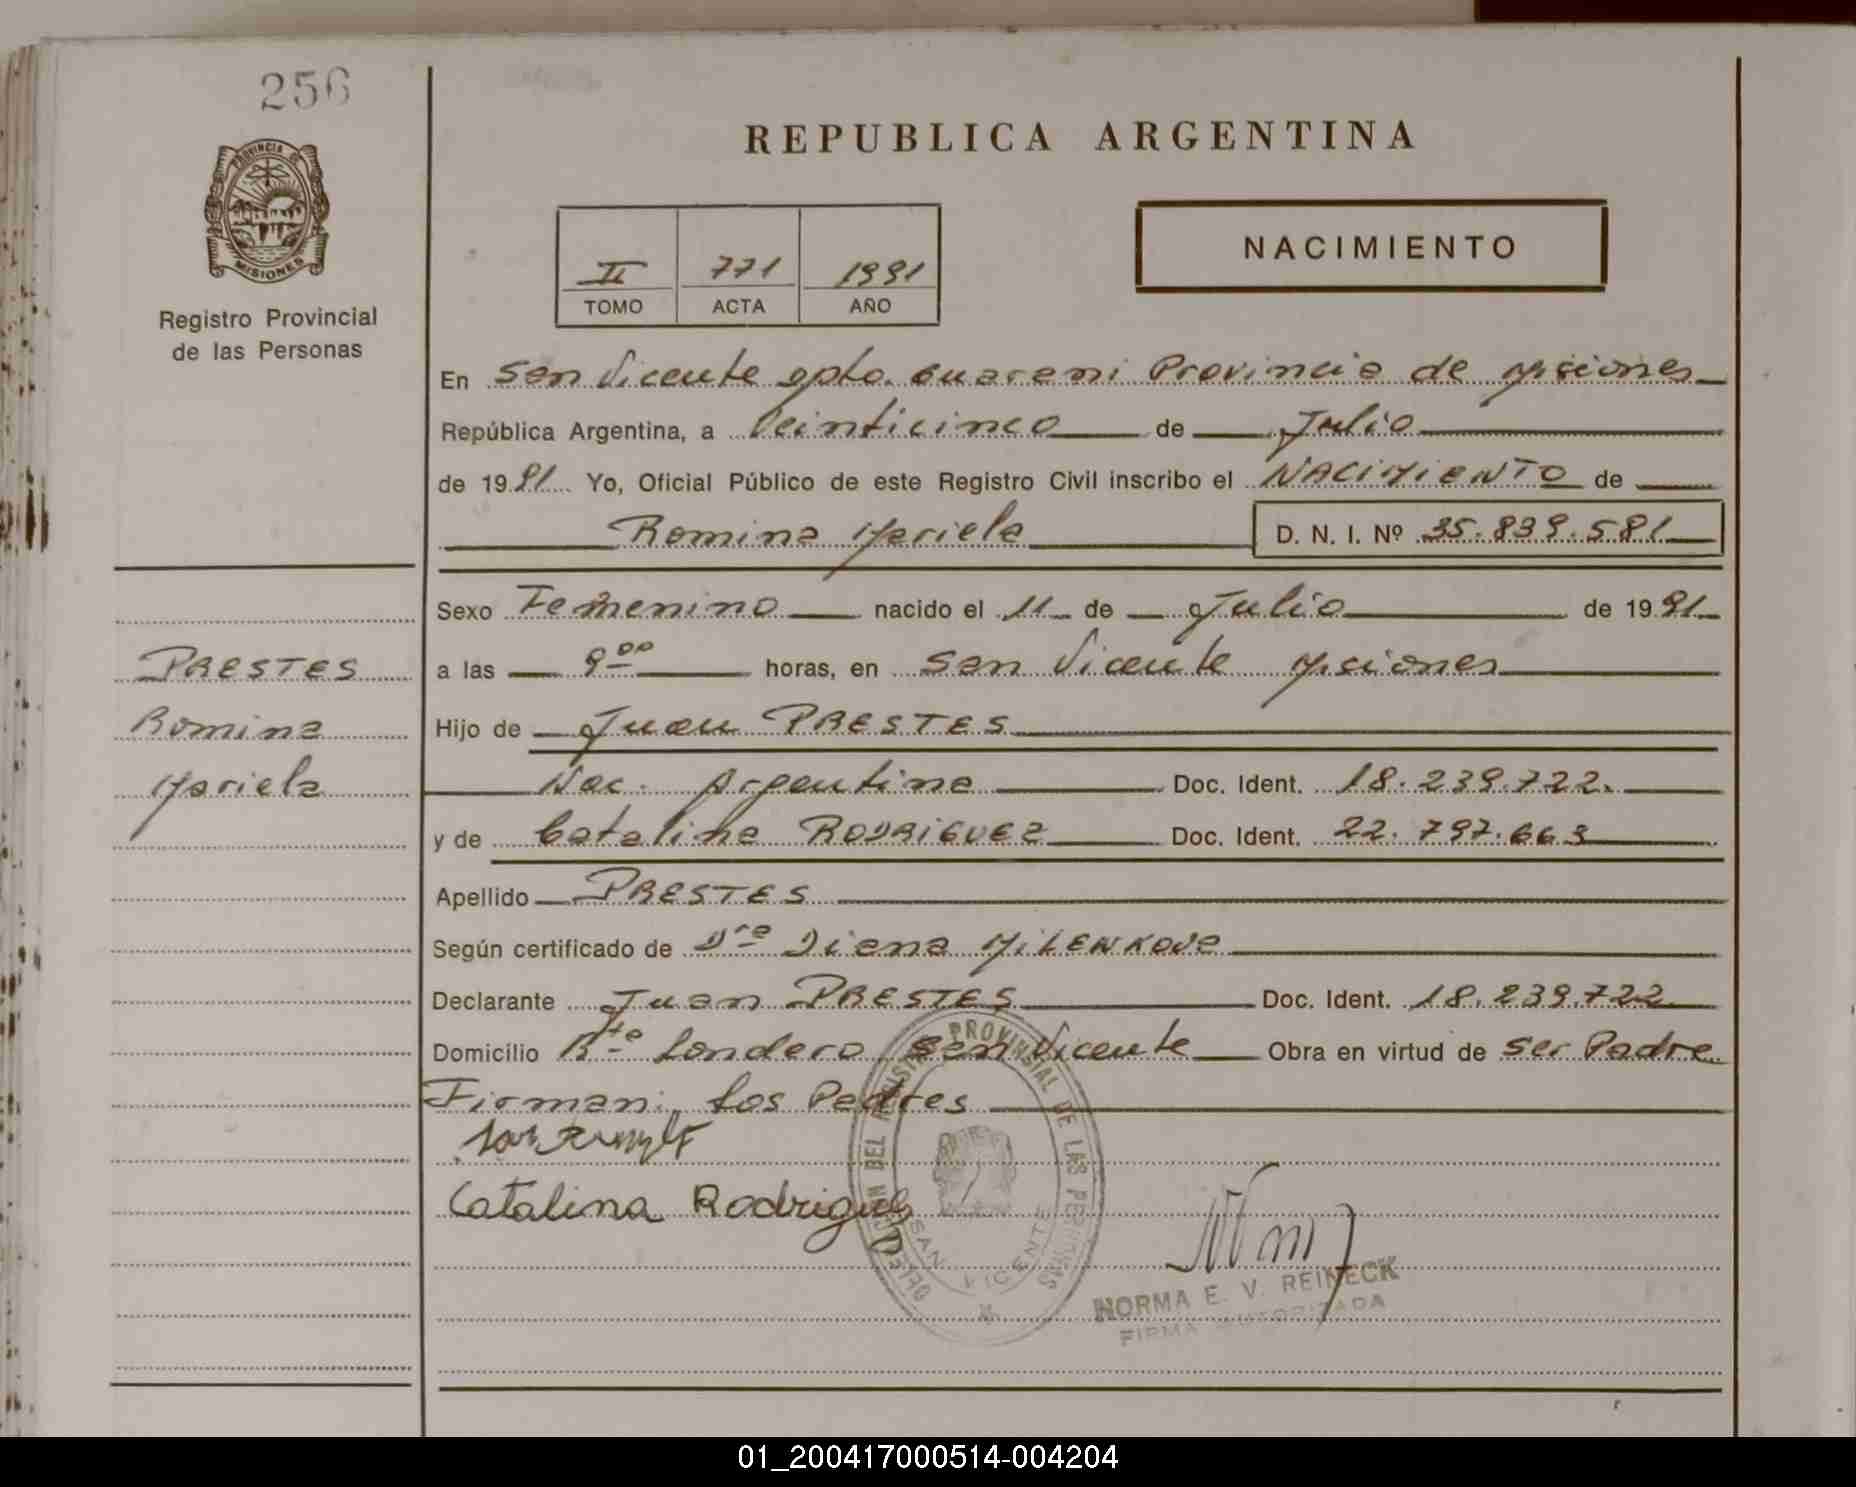 256
PROVINCIA DE
MISIONES
Registro Provincial
de las Personas
PRESTES
Romina
Mariela
REPUBLICA ARGENTINA
II 771 1991
TOMO ACTA AÑO
NACIMIENTO
En San Vicente Dpto. Guarani Provincia de Misiones
República Argentina, a Veinticinco de Julio
de 1991 Yo, Oficial Público de este Registro Civil inscribo el NACIMIENTO de
Romina Mariela D. N. I. Nº 35.839.581
Sexo Femenino nacido el 11 de Julio de 1991
a las 9 00 horas, en San Vicente Misiones
Hijo de Juan PRESTES
Nac. Argentina Doc. Ident. 18.239.722.
y de Catalina RODRIGUEZ Doc. Ident. 22.797.663
Apellido PRESTES
Según certificado de Dra Diana MILENKOVA
Declarante Juan PRESTES Doc. Ident. 18.239.722
Domicilio Londero, San Vicente Obra en virtud de ser Padre
Firman: Los Padres
Catalina Rodriguez
DELEGACION DEL REGISTRO PROVINCIAL DE LAS PERSONAS
SAN VICENTE
NORMA E. V. REINECK
FIRMA AUTORIZADA
01_200417000514-004204